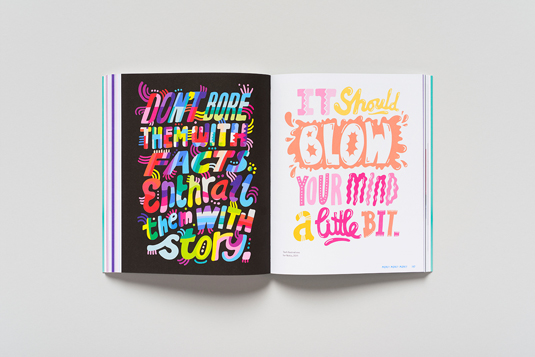 DON'T BORE
THEM WITH
FACTS.
Enthrall
them WITH
story.
IT Should
BLOW
YOUR MIND
a little BIT.